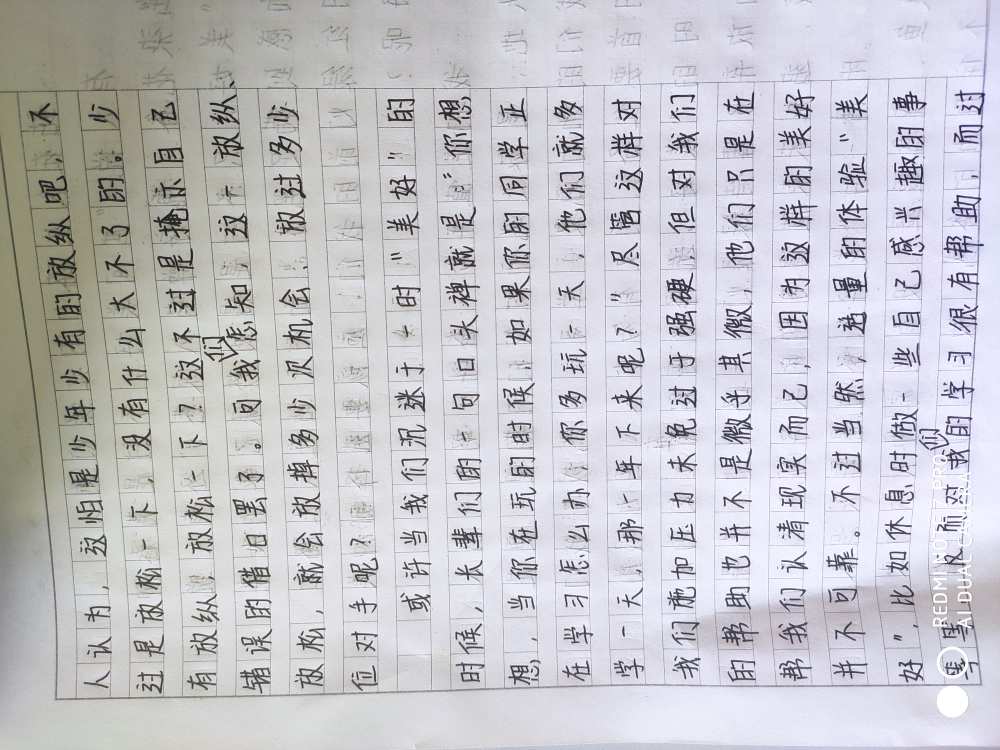 人认为，这怕是少年少有的放纵吧，不
过是放松一下，没有什么大不了的。少
有放纵，放松一下？这不过是掩示自己
错误的借口罢了。可我们怎知，这一放纵、
放松，就会放掉多少次机会、放过多少
位对手呢？
或许当我们沉迷于一时“美好”的
时候，长辈们的一句口头禅就是“你想
想，当你在玩的时候，如果你的同学正
在学习怎么办，你多玩一天，他们就多
学一天，那一年下来呢？”尽管这样对
我们施加压力未免过于强硬，但对我们
的帮助也并不是微乎其微，他们只是在
帮我们认清现实而已，因为这样的美好
并不可靠。不过当然，适量的体验“美
好”，比如休息时做一些自己感兴趣的事
等，反而对我们的学习很有帮助，而过
REDMI NOTE 8 PRO
AI DUAL CAMERA